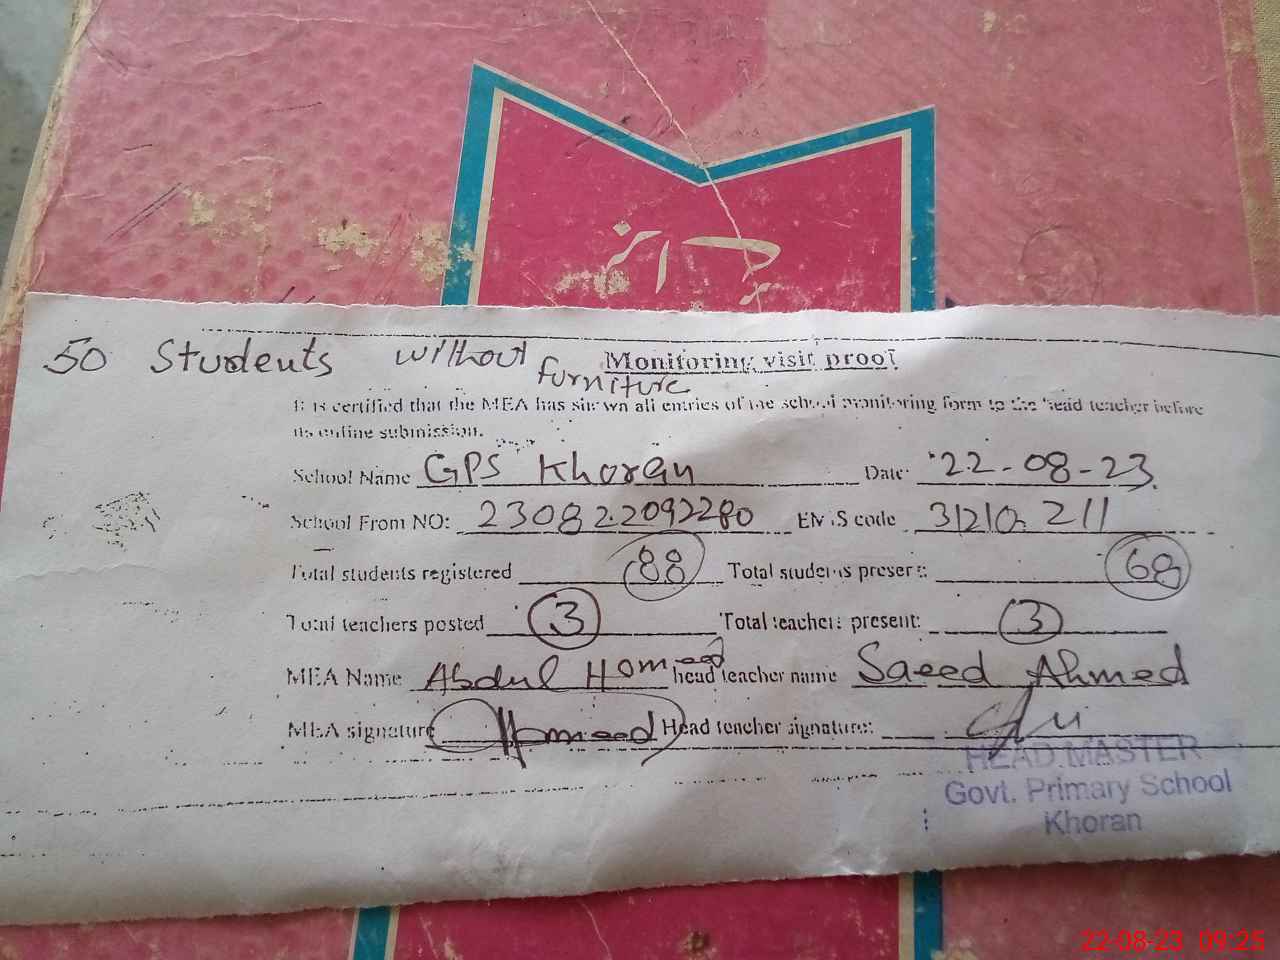 50 Students without furniture
Monitoring visit proof
It is certified that the MEA has shown all entries of the school monitoring form to the head teacher before
its online submission.
School Name GPS Khoran Date: 22-08-23
School From NO: 230822092280 EMIS code 31210211
Total students registered 88 Total students present: 68
Total teachers posted 3 Total teachers present: 3
MEA Name Abdul Hameed head teacher name Saeed Ahmed
MEA signature Hameed Head teacher signature:
HEAD MASTER
Govt. Primary School
Khoran
22-08-23 09:25